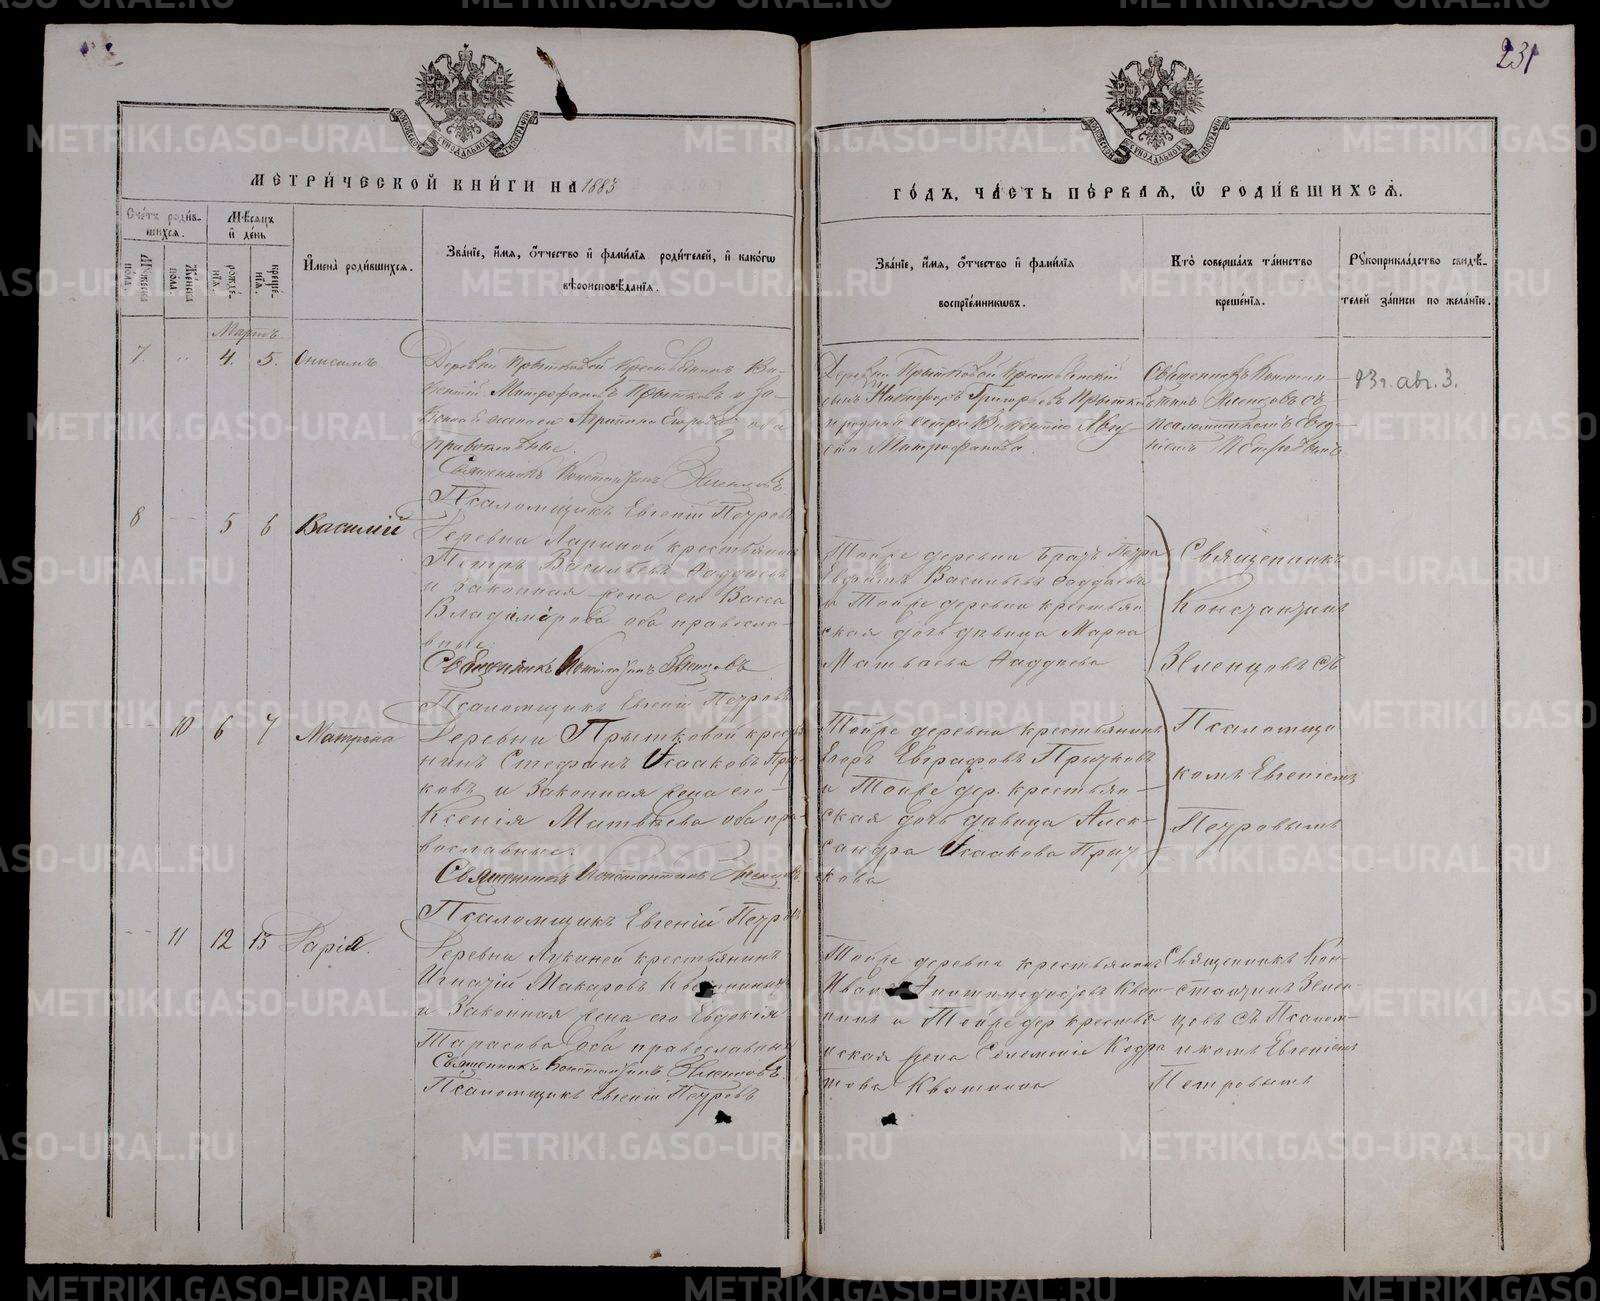 231
МЕТРИ́ЧЕСКОЙ КНИ́ГИ НА 1883
ГО́ДЪ, ЧА́СТЬ ПЕ́РВАЯ, Ѡ РОДИ́ВШИХСЯ.
Сче́тъ роди́в-
шихся.
Мѣ́сяцъ
и де́нь
Му́жеска
пола.
Же́нска
пола.
рожде́-
нїя.
креще́-
нїя.
И҆мена̀ роди́вшихся.
Зва́нїе, и҆́мя, ѻ҆́тчество и҆ фами́лїя роди́телей, и҆ како́гѡ
вѣроисповѣ́данїя.
Зва́нїе, и҆́мя, ѻ҆́тчество и҆ фами́лїя
воспрїе́мниковъ.
Кто̀ соверша́лъ та́инство
креще́нїя.
Рꙋкоприкла́дство свидѣ́-
телей за́писи по жела́нїю.
Мартъ
7 4. 5. Онисимъ
Деревни Прытковой крестьянинъ Ви-
кентий Митрофановъ Прытковъ и за-
конная жена его Агрипина Егорова оба
православные.
Священникъ Константинъ Зеленцовъ
Псаломщикъ Евгеній Петровъ
Деревни Прытковой Крестьянскій
сынъ Никифоръ Григорьевъ Прытковъ
и родная сестра Викентию Авгу
ста Митрофанова.
Священникъ Констан-
тинъ Зеленцовъ съ
псаломщикомъ Евге-
ніемъ Петровымъ
83г. авг. 3.
8 5 6 Василій
Деревни Лариной крестьянинъ
Петръ Васильевъ Фаддѣевъ
и Законная жена его Васса
Владимірова оба правосла-
вные.
Священникъ Константинъ Зеленцовъ
Псаломщикъ Евгеній Петровъ
Тойже деревни братъ Петра
Евфимъ Васильевъ Фаддѣевъ
и Тойже деревни крестьян
ская дочь дѣвица Марѳа
Матвѣева Фаддѣева
Священникъ
Константинъ
Зеленцовъ съ
10 6 7 Матрона
Деревни Прытковой крестья
нинъ Стефанъ Исааковъ Прыт
ковъ и Законная жена его
Ксенія Матвѣева оба пра-
вославные.
Священникъ Константинъ Зеленцовъ
Псаломщикъ Евгеній Петровъ
Тойже деревни крестьянинъ
Егоръ Евграфовъ Прытковъ
и Тойже дер. крестьян-
ская дочь дѣвица Алек-
сандра Исаакова Прыт
кова
Псаломщи
комъ Евгеніемъ
Петровымъ
11 12 13 Дарія.
Деревни Лукиной крестьянинъ
Игнатій Макаровъ Квашнинъ
и Законная жена его Евдокія
Тарасова Оба православные
Священникъ Константинъ Зеленцовъ
Псаломщикъ Евгеній Петровъ
Тойже деревни крестьянинъ
Иванъ Квашн-
нинъ и Тойже дер крестья
нская жена Кодра
това Квашнина
Священникъ Кон-
стантинъ Зелен-
цовъ съ Псалом-
икомъ Евгеніемъ
Петровымъ
METRIKI.GASO-URAL.RU